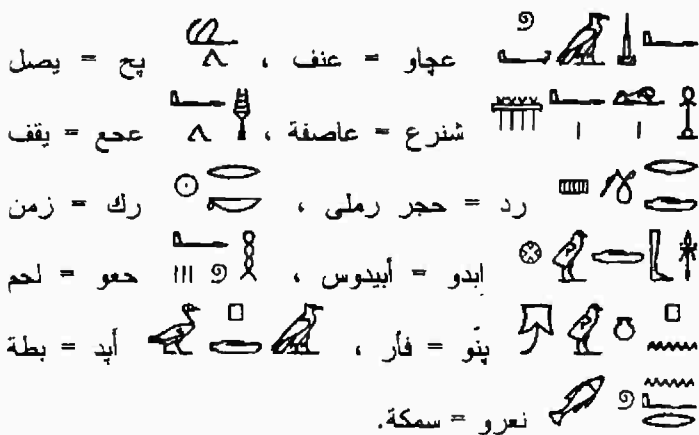 عچاو = عنف ، پح = يصل
شنرع = عاصفة ، عحع = يقف
رد = حجر رملى ، رك = زمن
إبدو = أبيدوس ، حعو = لحم
پنّو = فأر ، أپد = بطة
نعرو = سمكة.